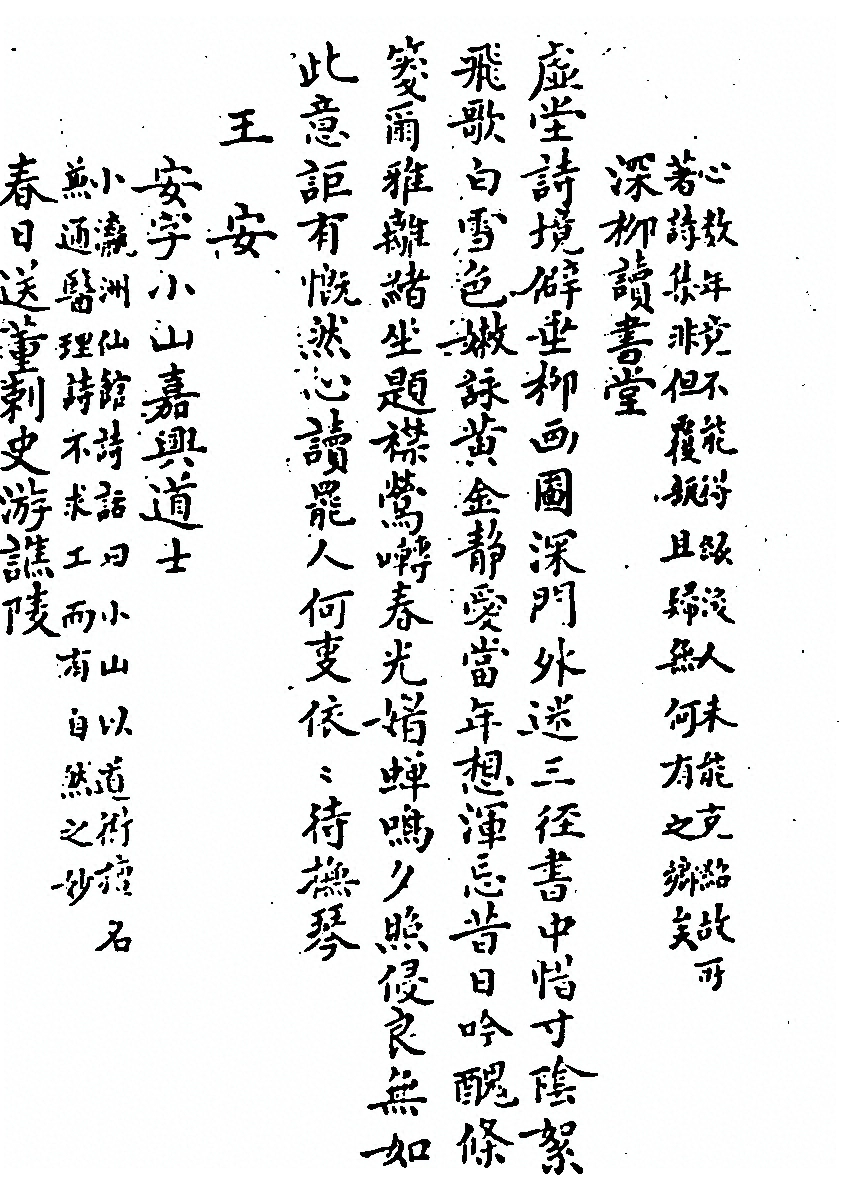 心数年竟不能得後人未能克紹故所
著詩集非但覆瓿且歸無何有之鄉矣
深柳讀書堂
虛堂詩境僻垂柳画圖深門外迷三徑書中惜寸陰絮
飛歌白雪色嫩詠黃金靜愛當年想渾忘昔日吟醜條
箋爾雅離緒坐題襟鶯囀春光媘蟬鳴夕照侵良無如
此意詎有慨然心讀罷人何㕛依〻待撫琴
王安
安字小山嘉興道士
小瀛洲仙館詩話曰小山以道術擅名
兼通醫理詩不求工而有自然之妙
春日送董刺史游譙陵